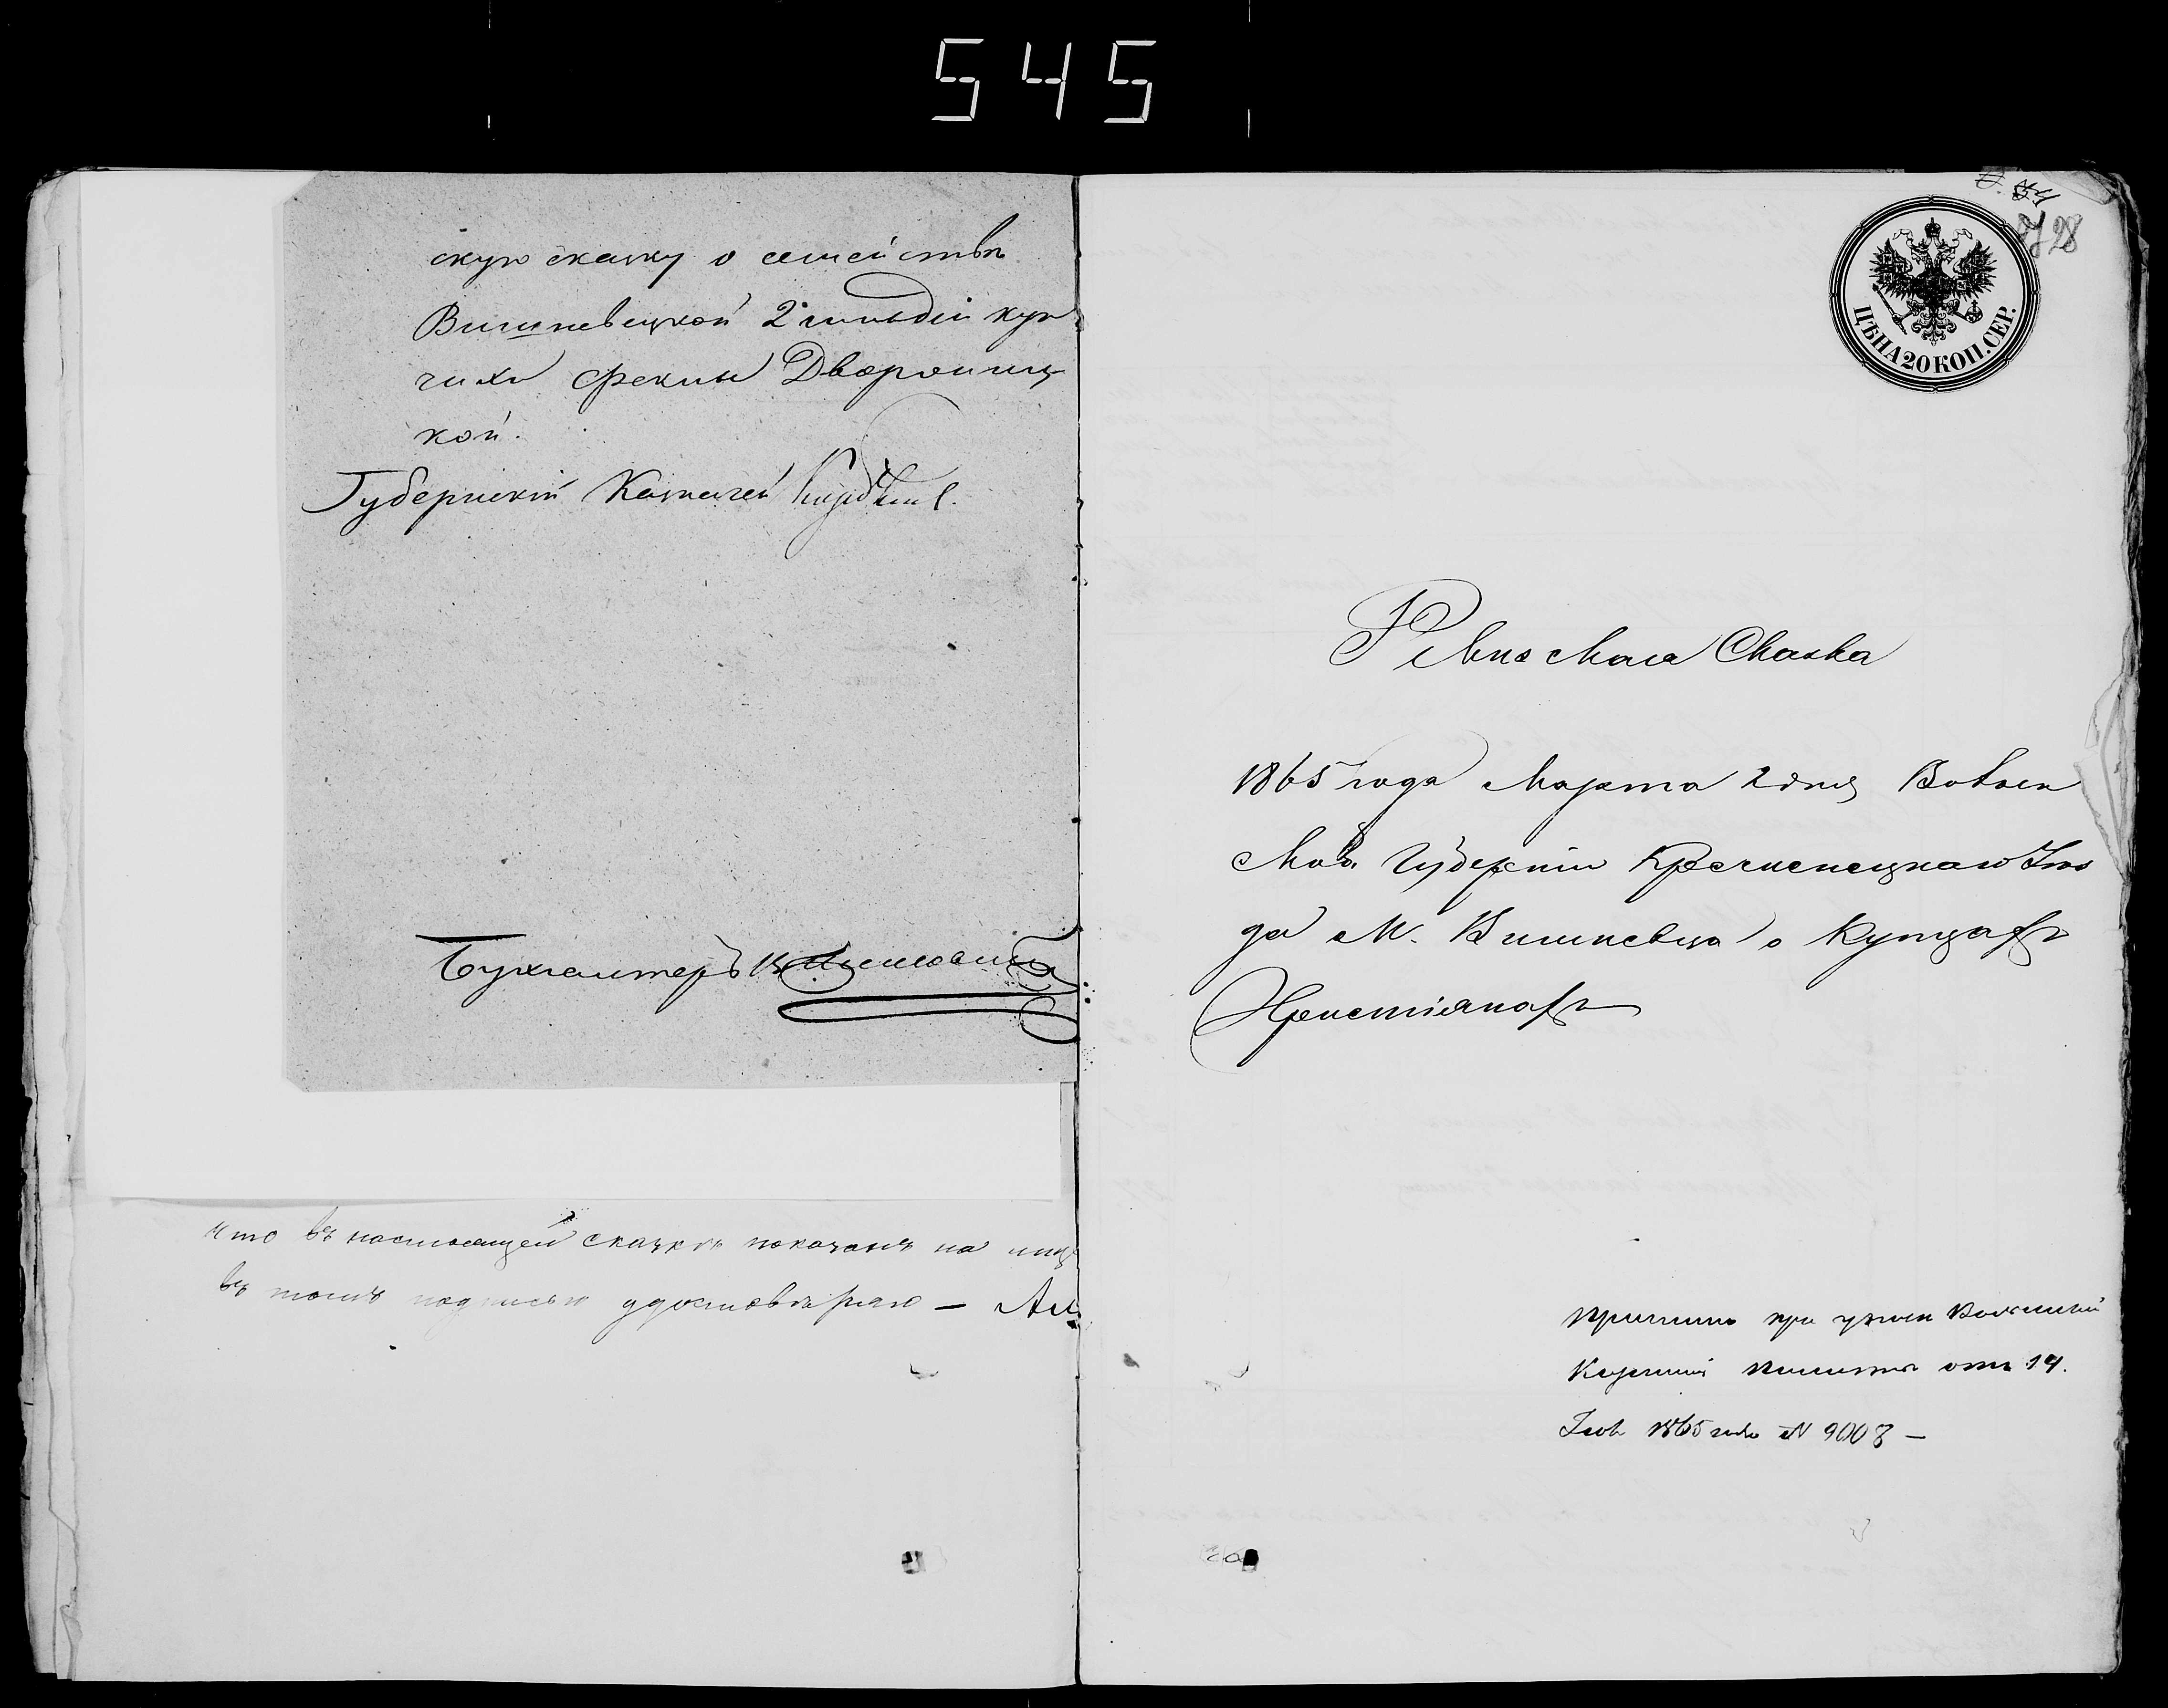 545
скую сказку о семействѣ
Вишневецкой 2 гильдіи куп
чихи Фейги Дворониц
кой.
Губернскій Казначей
Бухгалтеръ
что въ настоящей сказкѣ показанъ на лицо
въ томъ подписью удостовѣряю —
28
ЦѢНА 20 КОП. СЕР.
Ревизская Сказка
1865 года Марта 2 дня Волын
ской Губерніи Кременецкаго Уез
да М. Вишневца о Купцахъ
Христіанахъ
при указѣ Волынской
Казенной Палаты отъ 14.
1865 года № 9008 —